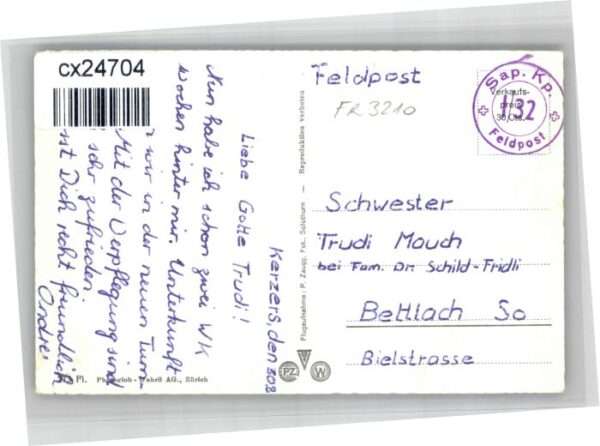 cx24704
Kerzers, den 308
Liebe Gotte Trudi!
Nun habe ich schon zwei WK
Wochen hinter mir. Unterkunft
wir in der neuen Turn-
Mit der Verpflegung sind
sehr zufrieden.
st Dich recht freundlich
André
Feldpost
FR 3210
Sap. Kp.
Verkaufs-
preis
I/32
30 Cts.
Feldpost
Schwester
Trudi Mouch
bei Fam. Dr. Schild-Fridli
Bettlach So
Bielstrasse
Flugaufnahme: P. Zaugg, Fot., Solothurn — Reproduktion verboten
PZ W
AG., Zürich